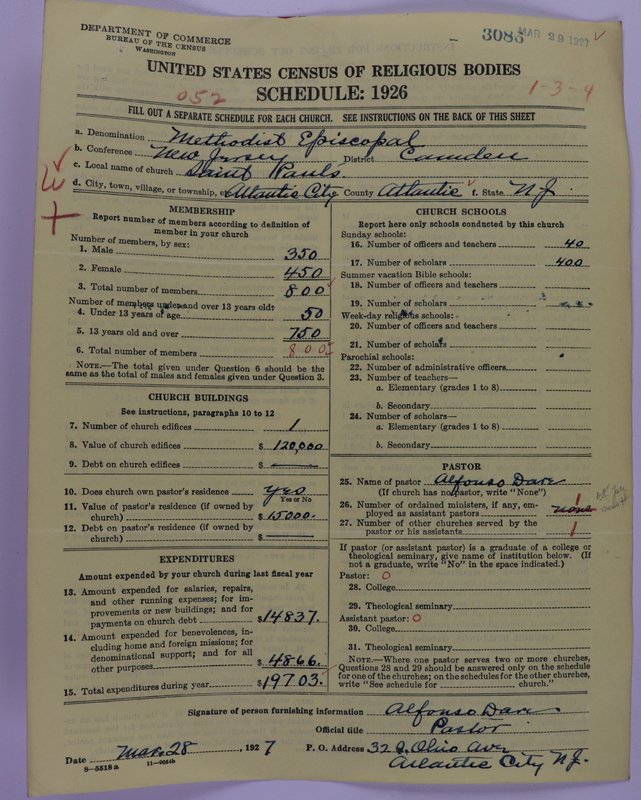 DEPARTMENT OF COMMERCE
BUREAU OF THE CENSUS
WASHINGTON
3085 MAR 29 1927
UNITED STATES CENSUS OF RELIGIOUS BODIES
052
SCHEDULE: 1926
1-3-4
FILL OUT A SEPARATE SCHEDULE FOR EACH CHURCH. SEE INSTRUCTIONS ON THE BACK OF THIS SHEET
a. Denomination Methodist Episcopal
b. Conference New Jersey District Camden
c. Local name of church Saint Pauls
d. City, town, village, or township, Atlantic City County Atlantic f. State N.J.
MEMBERSHIP
Report number of members according to definition of member in your church
Number of members, by sex:
1. Male 350
2. Female 450
3. Total number of members 800
Number of members under and over 13 years old:
4. Under 13 years of age 50
5. 13 years old and over 750
6. Total number of members 800
NOTE.—The total given under Question 6 should be the
same as the total of males and females given under Question 3.
CHURCH BUILDINGS
See instructions, paragraphs 10 to 12
7. Number of church edifices 1
8. Value of church edifices $ 120,000
9. Debt on church edifices $
10. Does church own pastor's residence yes
Yes or No
11. Value of pastor's residence (if owned by
church) $ 15000.
12. Debt on pastor's residence (if owned by
church) $
EXPENDITURES
Amount expended by your church during last fiscal year
13. Amount expended for salaries, repairs,
and other running expenses; for im-
provements or new buildings; and for
payments on church debt $14837.
14. Amount expended for benevolences, in-
cluding home and foreign missions; for
denominational support; and for all
other purposes $ 4866.
15. Total expenditures during year $19703.
CHURCH SCHOOLS
Report here only schools conducted by this church
Sunday schools:
16. Number of officers and teachers 40
17. Number of scholars 400
Summer vacation Bible schools:
18. Number of officers and teachers
19. Number of scholars
Week-day religious schools:
20. Number of officers and teachers
21. Number of scholars
Parochial schools:
22. Number of administrative officers
23. Number of teachers—
a. Elementary (grades 1 to 8)
b. Secondary
24. Number of scholars—
a. Elementary (grades 1 to 8)
b. Secondary
PASTOR
25. Name of pastor Alfonso Dare
(If church has no pastor, write "None")
26. Number of ordained ministers, if any, em-
ployed as assistant pastors none 1
27. Number of other churches served by the
pastor or his assistants 1
If pastor (or assistant pastor) is a graduate of a college or
theological seminary, give name of institution below. (If
not a graduate, write "No" in the space indicated.)
Pastor: O
28. College
29. Theological seminary
Assistant pastor: O
30. College
31. Theological seminary
NOTE.—Where one pastor serves two or more churches,
Questions 28 and 29 should be answered only on the schedule
for one of the churches; on the schedules for the other churches,
write "See schedule for church."
Signature of person furnishing information Alfonso Dare
Official title Pastor
Date Mar. 28, 1927 P. O. Address 32 S. Ohio Ave
Atlantic City N.J.
8—5518a 11—9054b